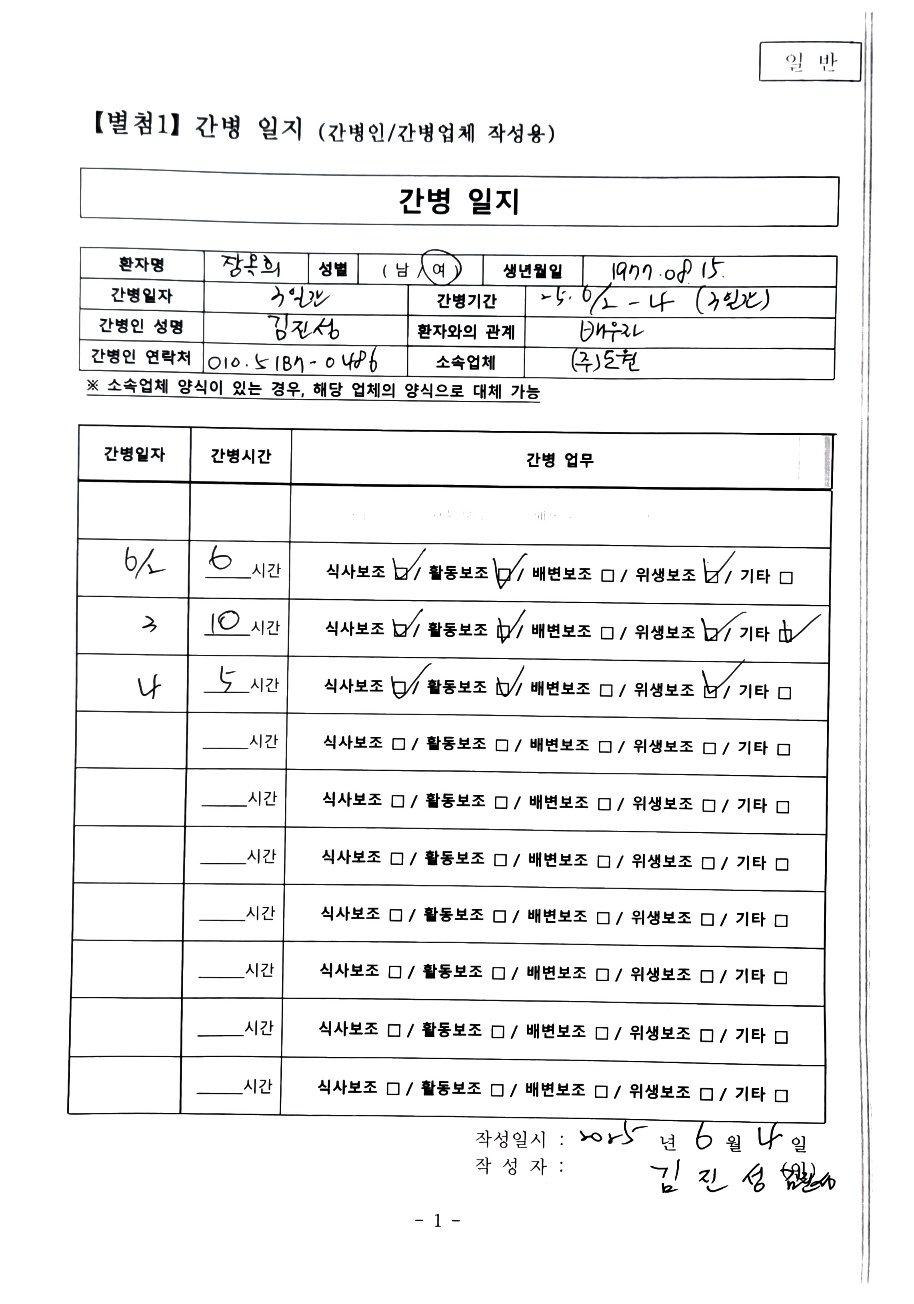 일 반
【별첨1】 간병 일지 (간병인/간병업체 작성용)
간병 일지
환자명 장옥희 성별 ( 남 / 여 ) 생년월일 1977.08.15.
간병일자 3일간 간병기간 25. 6/2 - 4 (3일간)
간병인 성명 김진성 환자와의 관계 배우자
간병인 연락처 010.5187-0486 소속업체 (주)도원
※ 소속업체 양식이 있는 경우, 해당 업체의 양식으로 대체 가능
간병일자 간병시간 간병 업무
6/2 6 시간 식사보조 ☑ / 활동보조 ☑ / 배변보조 □ / 위생보조 ☑ / 기타 □
3 10 시간 식사보조 ☑ / 활동보조 ☑ / 배변보조 □ / 위생보조 ☑ / 기타 ☑
4 5 시간 식사보조 ☑ / 활동보조 ☑ / 배변보조 □ / 위생보조 ☑ / 기타 □
____시간 식사보조 □ / 활동보조 □ / 배변보조 □ / 위생보조 □ / 기타 □
____시간 식사보조 □ / 활동보조 □ / 배변보조 □ / 위생보조 □ / 기타 □
____시간 식사보조 □ / 활동보조 □ / 배변보조 □ / 위생보조 □ / 기타 □
____시간 식사보조 □ / 활동보조 □ / 배변보조 □ / 위생보조 □ / 기타 □
____시간 식사보조 □ / 활동보조 □ / 배변보조 □ / 위생보조 □ / 기타 □
____시간 식사보조 □ / 활동보조 □ / 배변보조 □ / 위생보조 □ / 기타 □
____시간 식사보조 □ / 활동보조 □ / 배변보조 □ / 위생보조 □ / 기타 □
작성일시 : 2025 년 6 월 4 일
작 성 자 : 김 진 성
- 1 -